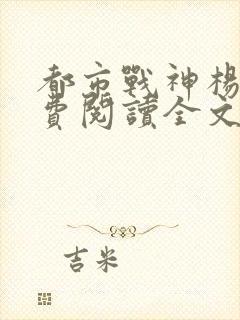 都市戰神楊
費閱讀全文
吉米